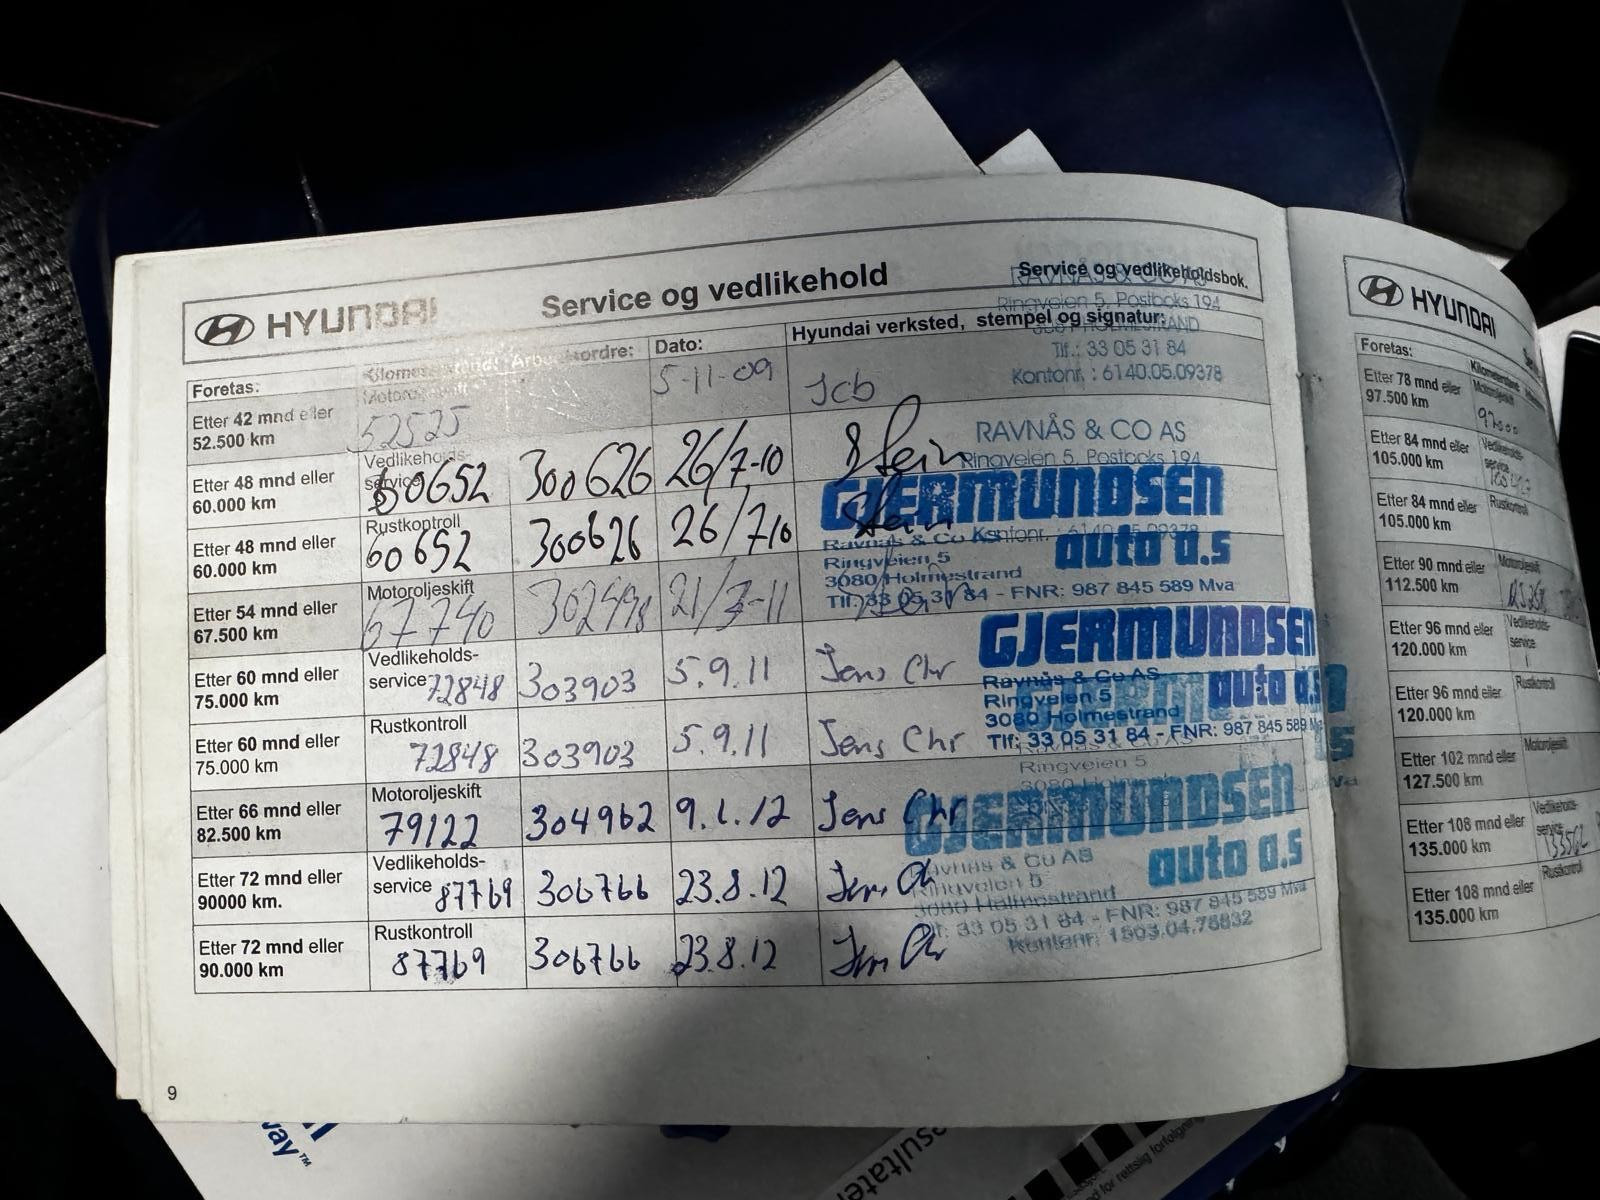 HYUNDAI Service og vedlikehold Service og vedlikeholdsbok.
Foretas: Arbeidsordre: Dato: Hyundai verksted, stempel og signatur:
Etter 42 mnd eller 52.500 km 52525 5-11-09 Jcb
Etter 48 mnd eller 60.000 km Vedlikeholds-service 60652 300626 26/7-10 Stein
Etter 48 mnd eller 60.000 km Rustkontroll 60652 300626 26/7 10 Stein
Etter 54 mnd eller 67.500 km Motoroljeskift 67740 302498 21/3-11
Etter 60 mnd eller 75.000 km Vedlikeholds-service 72848 303903 5.9.11 Jens Chr
Etter 60 mnd eller 75.000 km Rustkontroll 72848 303903 5.9.11 Jens Chr
Etter 66 mnd eller 82.500 km Motoroljeskift 79122 304962 9.1.12 Jens Chr
Etter 72 mnd eller 90000 km. Vedlikeholds-service 87769 306766 23.8.12
Etter 72 mnd eller 90.000 km Rustkontroll 87769 306766 23.8.12
RAVNÅS & CO AS
Ringveien 5, Postboks 194
Tlf.: 33 05 31 84
Kontonr. : 6140.05.09378
RAVNÅS & CO AS
Ringveien 5, Postboks 194
Kontonr. : 6140.05.09378
GJERMUNDSEN
auto a.s
Ravnås & Co AS
Ringveien 5
3080 Holmestrand
Tlf: 33 05 31 84 - FNR: 987 845 589 Mva
GJERMUNDSEN
auto a.s
Ravnås & Co AS
Ringveien 5
3080 Holmestrand
Tlf: 33 05 31 84 - FNR: 987 845 589 M
Ringveien 5
GJERMUNDSEN
auto a.s
Ravnås & Co AS
Ringveien 5
3080 Holmestrand
Tlf: 33 05 31 84 - FNR: 987 845 589 Mva
Kontonr: 1503.04.75832
9
HYUNDAI
Foretas: Kilometerstand
Etter 78 mnd eller 97.500 km Motoroljeskift
Etter 84 mnd eller 105.000 km Vedlikeholds-service
Etter 84 mnd eller 105.000 km Rustkontroll
Etter 90 mnd eller 112.500 km Motoroljeskift
Etter 96 mnd eller 120.000 km Vedlikeholds-service
Etter 96 mnd eller 120.000 km Rustkontroll
Etter 102 mnd eller 127.500 km Motoroljeskift
Etter 108 mnd eller 135.000 km Vedlikeholds-service
Etter 108 mnd eller 135.000 km Rustkontroll
way™